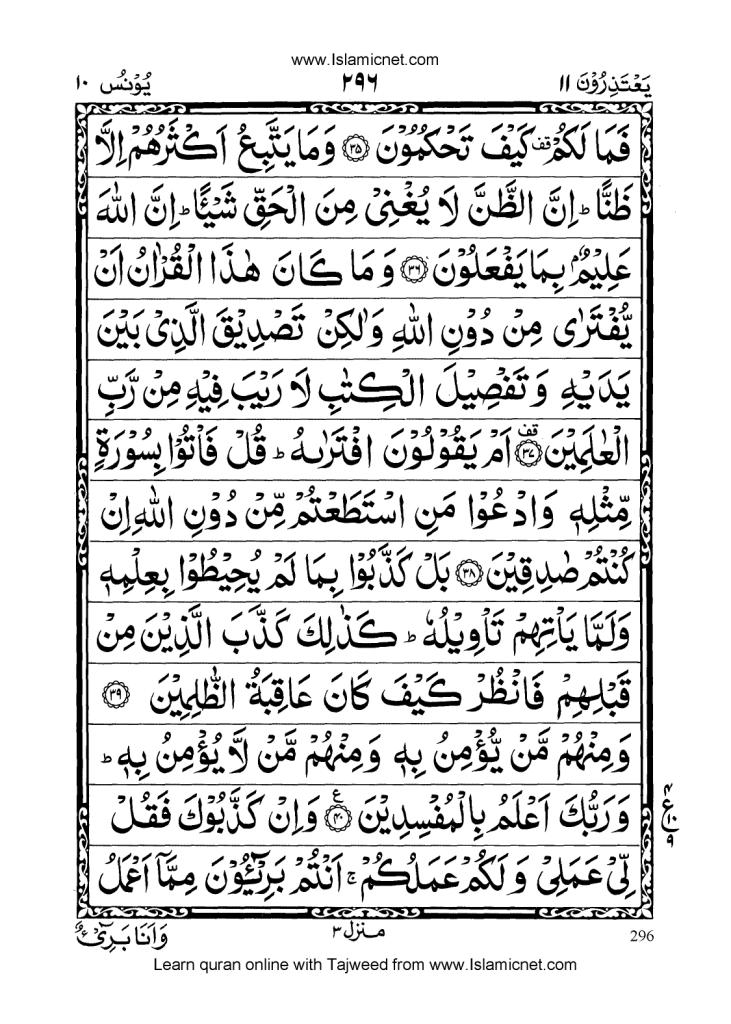 www.Islamicnet.com
يَعْتَذِرُوْنَ ١١
٢٩٦
يُوْنُس ١٠
فَمَا لَكُمْ قف كَيْفَ تَحْكُمُوْنَ ۝٣٥ وَمَا يَتَّبِعُ اَكْثَرُهُمْ اِلَّا
ظَنًّا ؕ اِنَّ الظَّنَّ لَا يُغْنِىْ مِنَ الْحَقِّ شَيْـًٔا ؕ اِنَّ اللّٰهَ
عَلِيْمٌۢ بِمَا يَفْعَلُوْنَ ۝٣٦ وَمَا كَانَ هٰذَا الْقُرْاٰنُ اَنْ
يُّفْتَرٰى مِنْ دُوْنِ اللّٰهِ وَلٰكِنْ تَصْدِيْقَ الَّذِىْ بَيْنَ
يَدَيْهِ وَتَفْصِيْلَ الْكِتٰبِ لَا رَيْبَ فِيْهِ مِنْ رَّبِّ
الْعٰلَمِيْنَ قف ۝٣٧ اَمْ يَقُوْلُوْنَ افْتَرٰىهُ ؕ قُلْ فَاْتُوْا بِسُوْرَةٍ
مِّثْلِهٖ وَادْعُوْا مَنِ اسْتَطَعْتُمْ مِّنْ دُوْنِ اللّٰهِ اِنْ
كُنْتُمْ صٰدِقِيْنَ ۝٣٨ بَلْ كَذَّبُوْا بِمَا لَمْ يُحِيْطُوْا بِعِلْمِهٖ
وَلَمَّا يَاْتِهِمْ تَاْوِيْلُهٗ ؕ كَذٰلِكَ كَذَّبَ الَّذِيْنَ مِنْ
قَبْلِهِمْ فَانْظُرْ كَيْفَ كَانَ عَاقِبَةُ الظّٰلِمِيْنَ ۝٣٩
وَمِنْهُمْ مَّنْ يُّؤْمِنُ بِهٖ وَمِنْهُمْ مَّنْ لَّا يُؤْمِنُ بِهٖ ؕ
وَرَبُّكَ اَعْلَمُ بِالْمُفْسِدِيْنَ ع ۝٤٠ وَاِنْ كَذَّبُوْكَ فَقُلْ
٤
ع ١٠
٩
لِّىْ عَمَلِىْ وَلَكُمْ عَمَلُكُمْ ۚ اَنْتُمْ بَرِيْٓـُٔوْنَ مِمَّاۤ اَعْمَلُ
296
منزل ٣
وَاَنَا بَرِىْٓءٌ
Learn quran online with Tajweed from www.Islamicnet.com